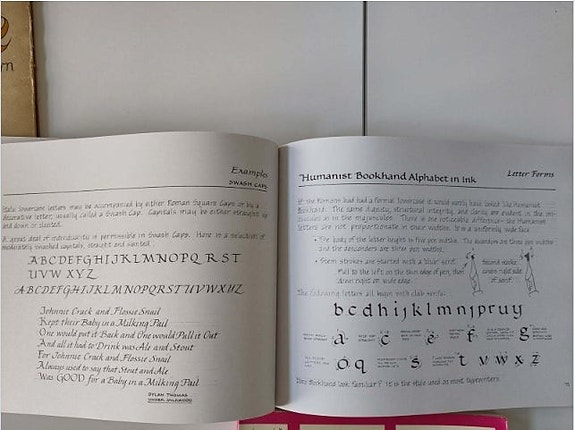 rn
Examples
SWASH CAPS
Italic lowercase letters may be accompanied by either Roman Square Caps or by a
decorative letter, usually called a Swash Cap. Capitals may be either straight up
and down or slanted.
A great deal of individuality is permissible in Swash Caps. Here is a selection of
moderately swashed capitals, straight and slanted.
ABCDEFGHIJKLMNOPQ RST
UVW XYZ
ABCDEFGHIJKLMNOPQRSTUVWXYZ
Johnnie Crack and Flossie Snail
Kept their Baby in a Milking Pail
One would put it Back and One would Pull it Out
And all it had to Drink was Ale and Stout
For Johnnie Crack and Flossie Snail
Always used to say that Stout and Ale
Was GOOD for a Baby in a Milking Pail
DYLAN THOMAS
UNDER MILKWOOD
Humanist Bookhand Alphabet in Ink
Letter Forms
If the Romans had had a formal lowercase it would surely have looked like Humanist
Bookhand. The same dignity, structural integrity, and clarity are evident in the
as in the majuscules. There is one noticeable difference— the Humanist
letters are not proportionate in their widths. It is a uniformly wide face.
• The body of the letter height is five pen widths. The ascenders are three pen widths
and the descenders are three pen widths.
• Stem strokes are started with a "club" serif.
Pull to the left on the thin edge of pen, then
down, right on wide edge
Second stroke
covers right side
of serif.
The following letters all begin with club serifs:
bcdhijklmnjpruy
a c e f g
o q s t v w x z
Does Bookhand look familiar? It is the style used on most typewriters.